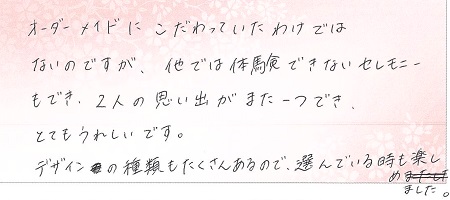 オーダーメイドにこだわっていたわけでは
ないのですが、他では体験できないセレモニー
もでき、2人の思い出がまた一つでき、
とてもうれしいです。
デザインの種類もたくさんあるので、選んでいる時も楽し
めました。